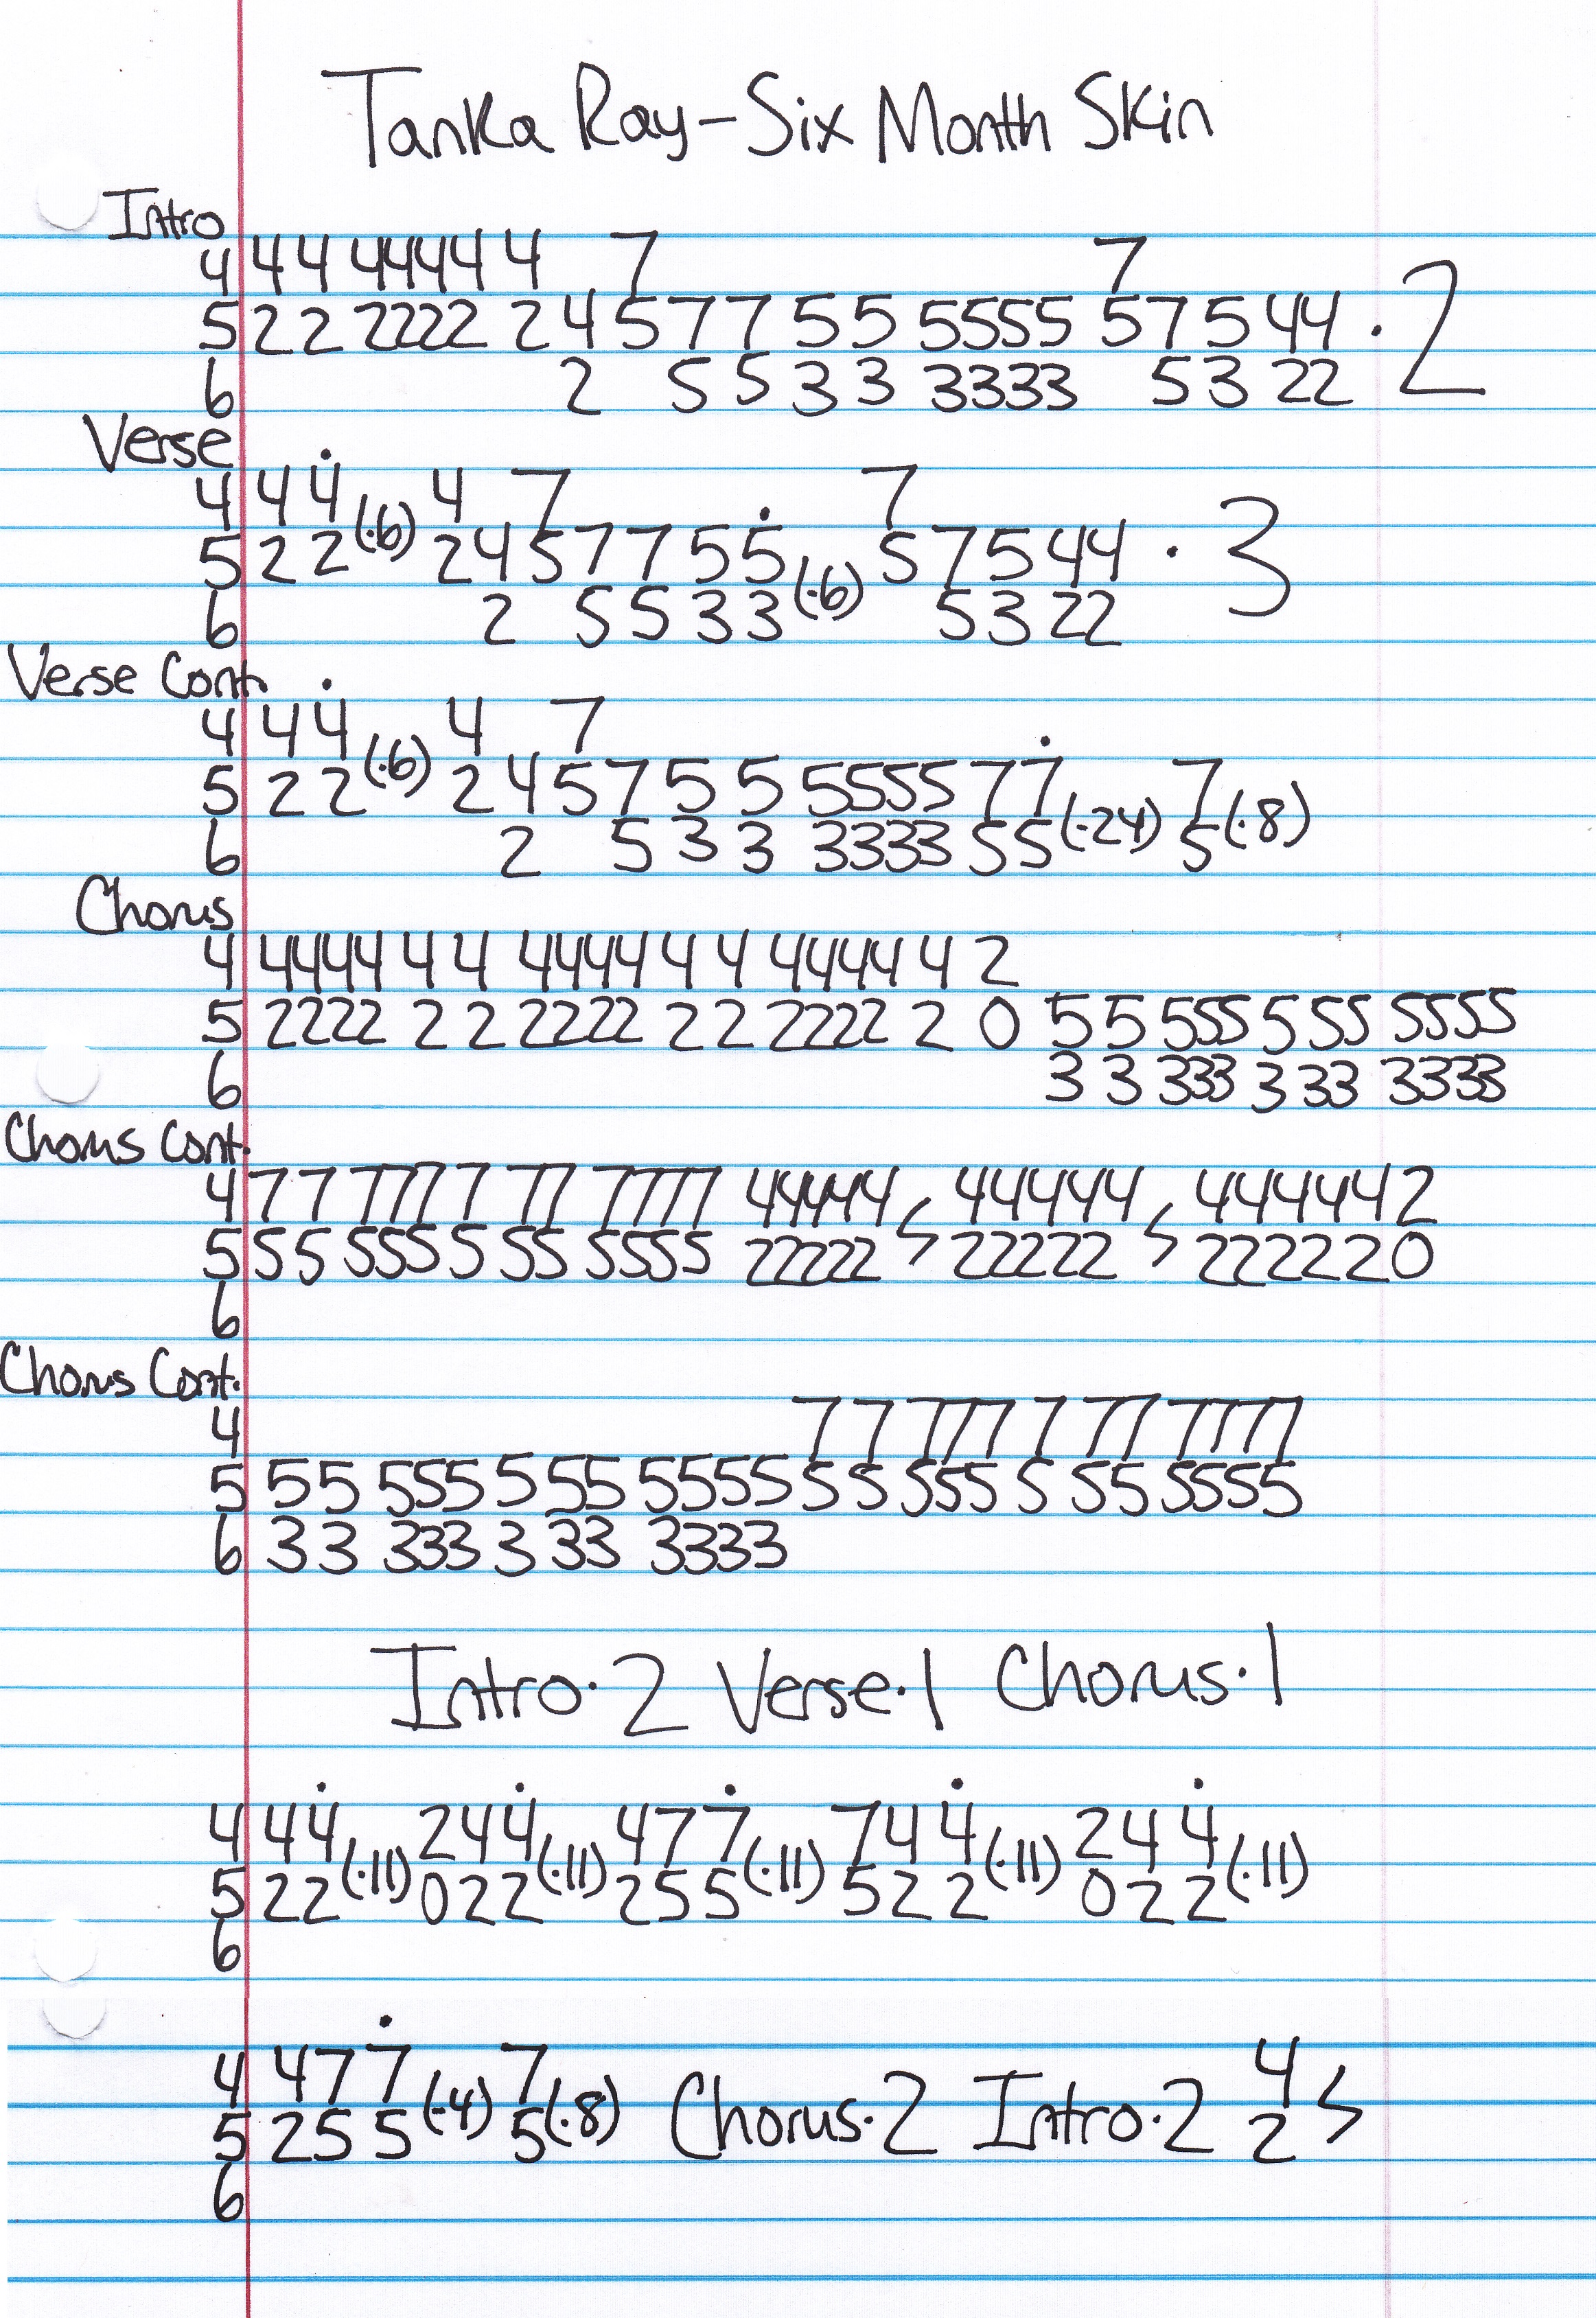 Tanka Ray-Six Month Skin
Intro
4 44 44444 4 7 7
5 22 22222 2457755 5555 57544 · 2
6 2 5533 3333 5322
Verse
4 44 (·6) 4 7 7
5 22 24577 55 (·6) 57544 · 3
6 2 5533 5322
Verse Cont.
4 44 (·6) 4 7
5 22 245755 5555 77 (·24) 7 (·8)
6 2 533 3333 55 5
Chorus
4 4444 4 4 4444 4 4 4444 4 2
5 2222 2 2 2222 2 2 2222 2 0 5 5 555 5 55 5555
6 3 3 333 3 33 3333
Chorus Cont.
4 7 7 777 7 77 7777 44444 S 44444 S 444442
5 5 5 555 5 55 5555 22222 22222 222220
6
Chorus Cont.
4 7 7 777 7 77 7777
5 5 5 555 5 55 5555 5 5 555 5 55 5555
6 3 3 333 3 33 3333
Intro·2 Verse·1 Chorus·1
4 44 (·11) 244 (·11) 477 (·11) 744 (·11) 244 (·11)
5 22 022 255 522 022
6
4 477 (·4) 7 (·8) Chorus·2 Intro·2 4 S
5 255 5 2
6